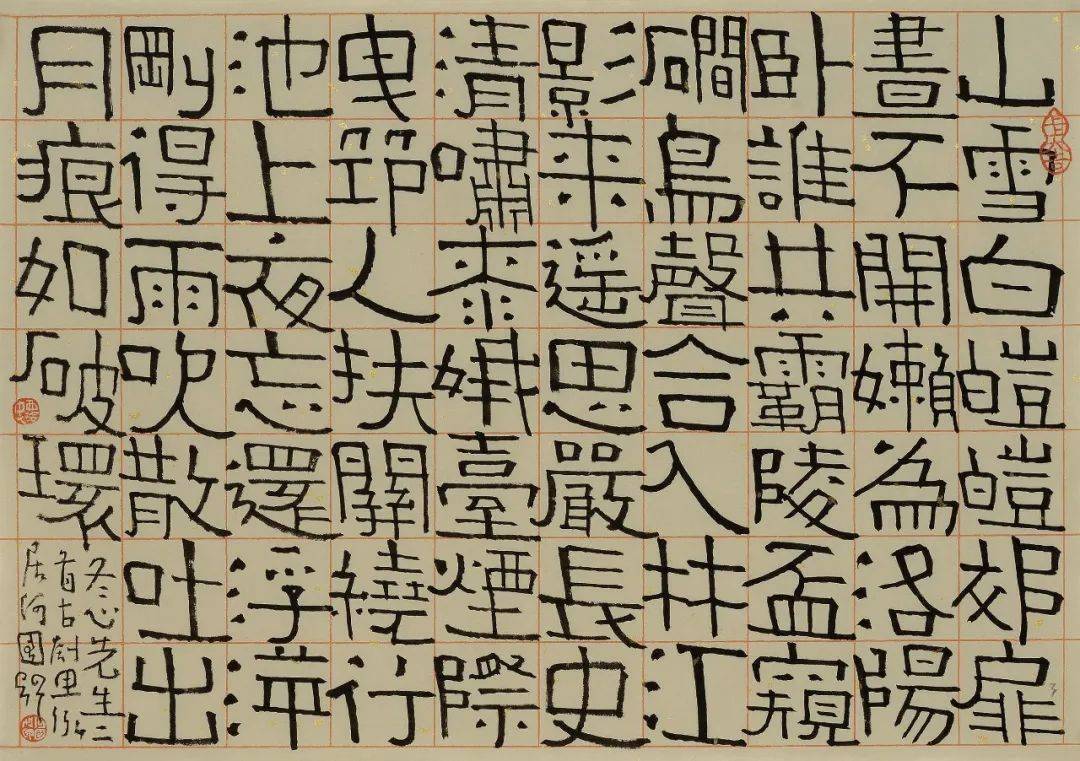 山雪白皚皚郊扉
晝不開嬾為洛陽
臥誰共霸陵盃窺
磵鳥聲合入林江
影來遥思嚴長史
清嘯娥臺煙際
曳筇人扶繞行
池上夜忘還浮萍
剛得雨吹散吐出
月痕如破環
冬心先生二
首古里
居河